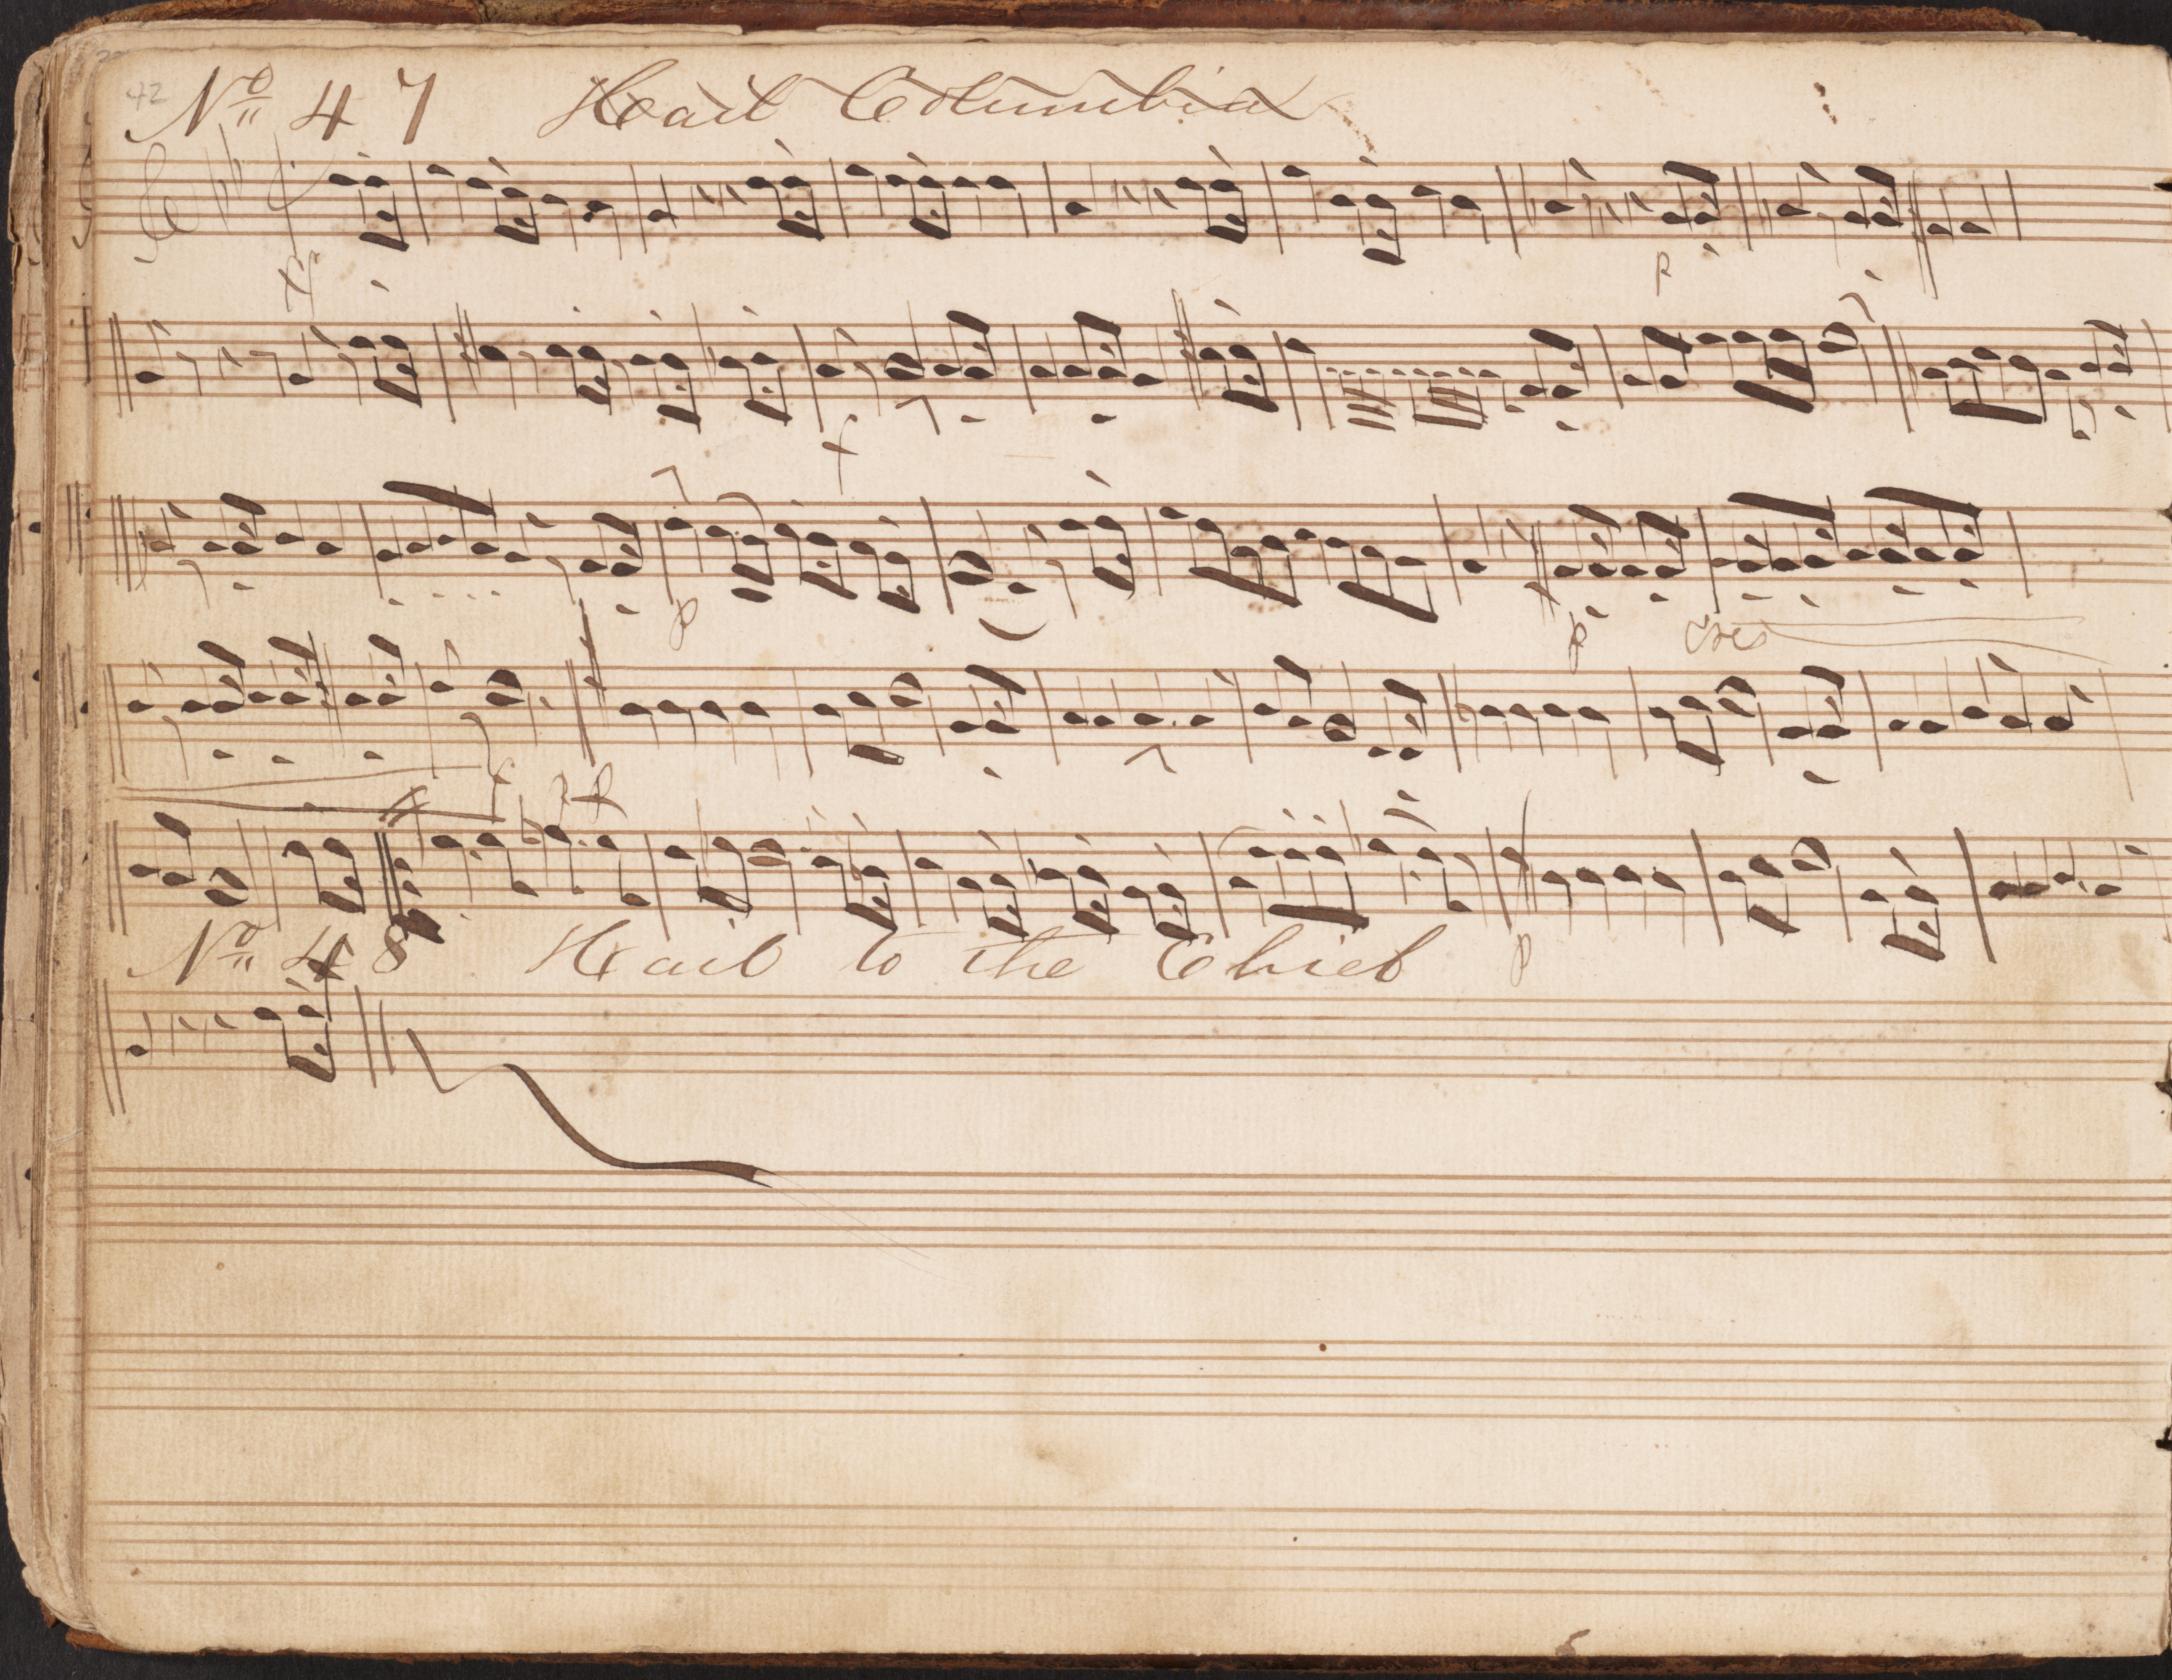 42
Nº 47 Hail Columbia
ff
p
f
p
p
Cres
f
p f
Nº 48 Hail to the Chief
p